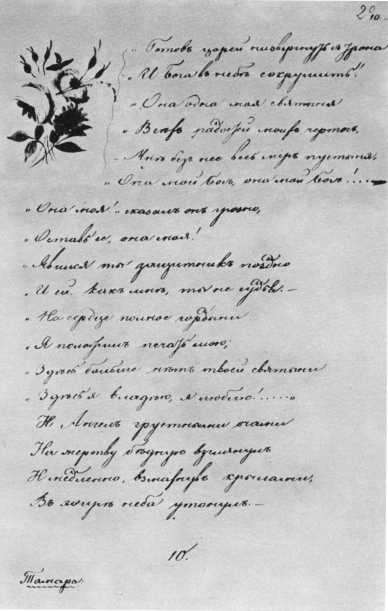 „ Готовъ царей низвергнуть я з трона
„ И Бога въ небѣ сокрушить!
„ Она одна моя святыня
„ Всѣхъ радостей моихъ
„ Мнѣ безъ нее весь міръ пустыня,
„ Она мой Богъ, она мой Богъ!....
„ Она моя! сказалъ онъ грозно,
„ Оставь ее, она моя!
„ Явился ты защитникъ поздно
„ И ей, какъ мнѣ, ты не судья. —
„ На сердце полное гордыни
„ Я положилъ печать мою;
„ Здѣсь больше нѣтъ твоей святыни
„ Здѣсь я владѣю, я люблю!.....„
И Ангелъ грустными очами
На жертву бѣдную взглянулъ
И медленно, взмахнувъ крылами,
Въ эѳирѣ неба утонулъ. —
10.
Тамара.